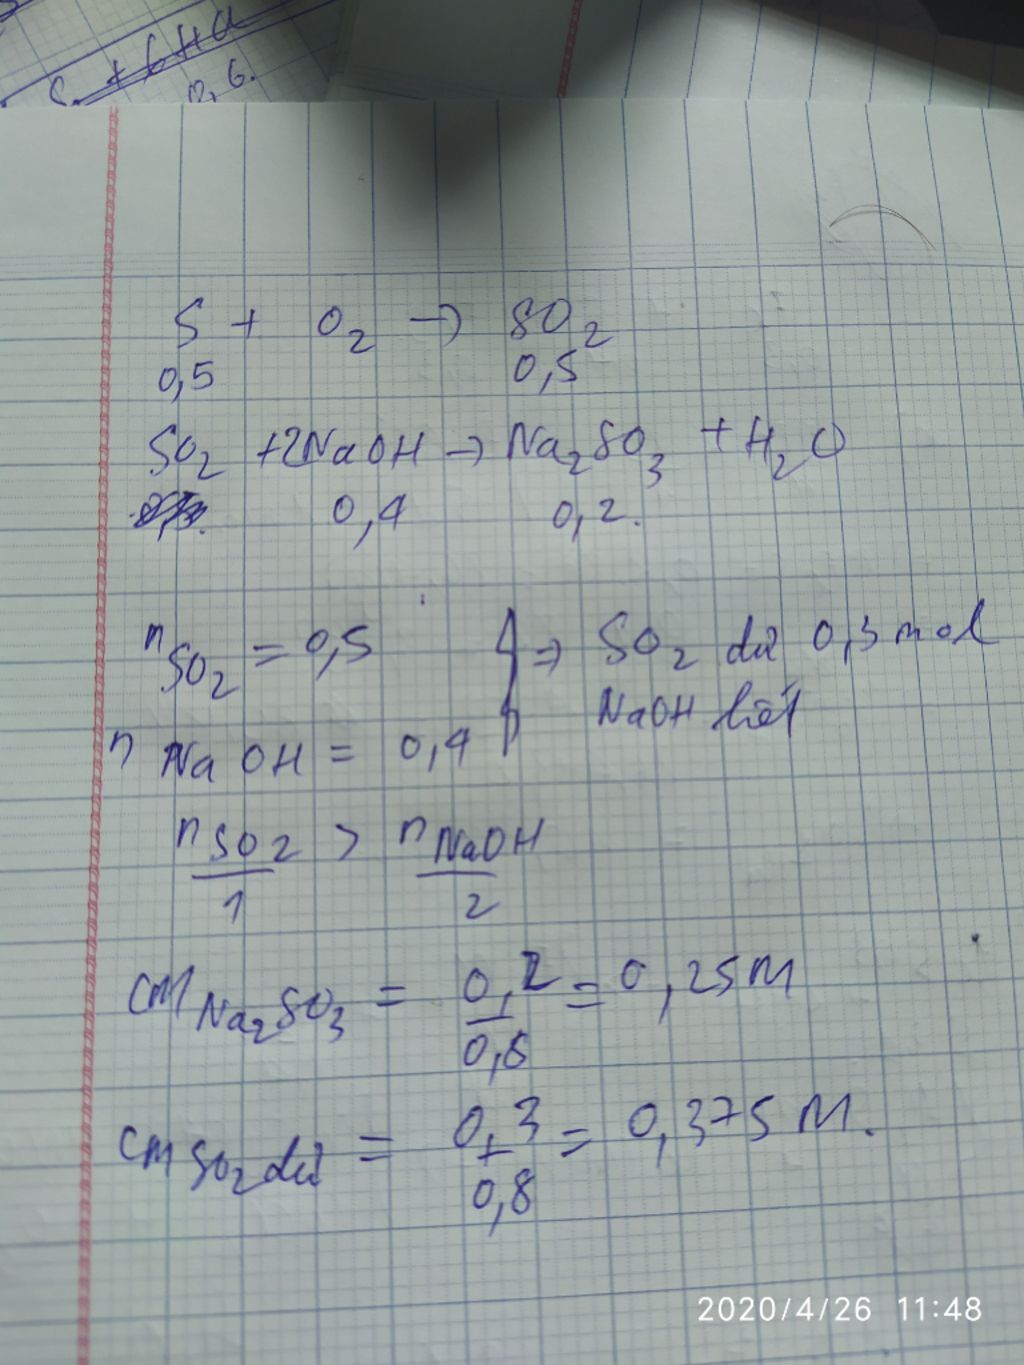 S + 6HCl
0,6.
S + O2 → SO2
0,5 0,5
SO2 +2NaOH → Na2SO3 + H2O
0,4 0,2.
nSO2 = 0,5 } ⇒ SO2 dư 0,3 mol
NaOH hết
nNaOH = 0,4
nSO2/1 > nNaOH/2
CM Na2SO3 = 0,2/0,8 = 0,25M
CM SO2 dư = 0,3/0,8 = 0,375 M.
2020/4/26 11:48